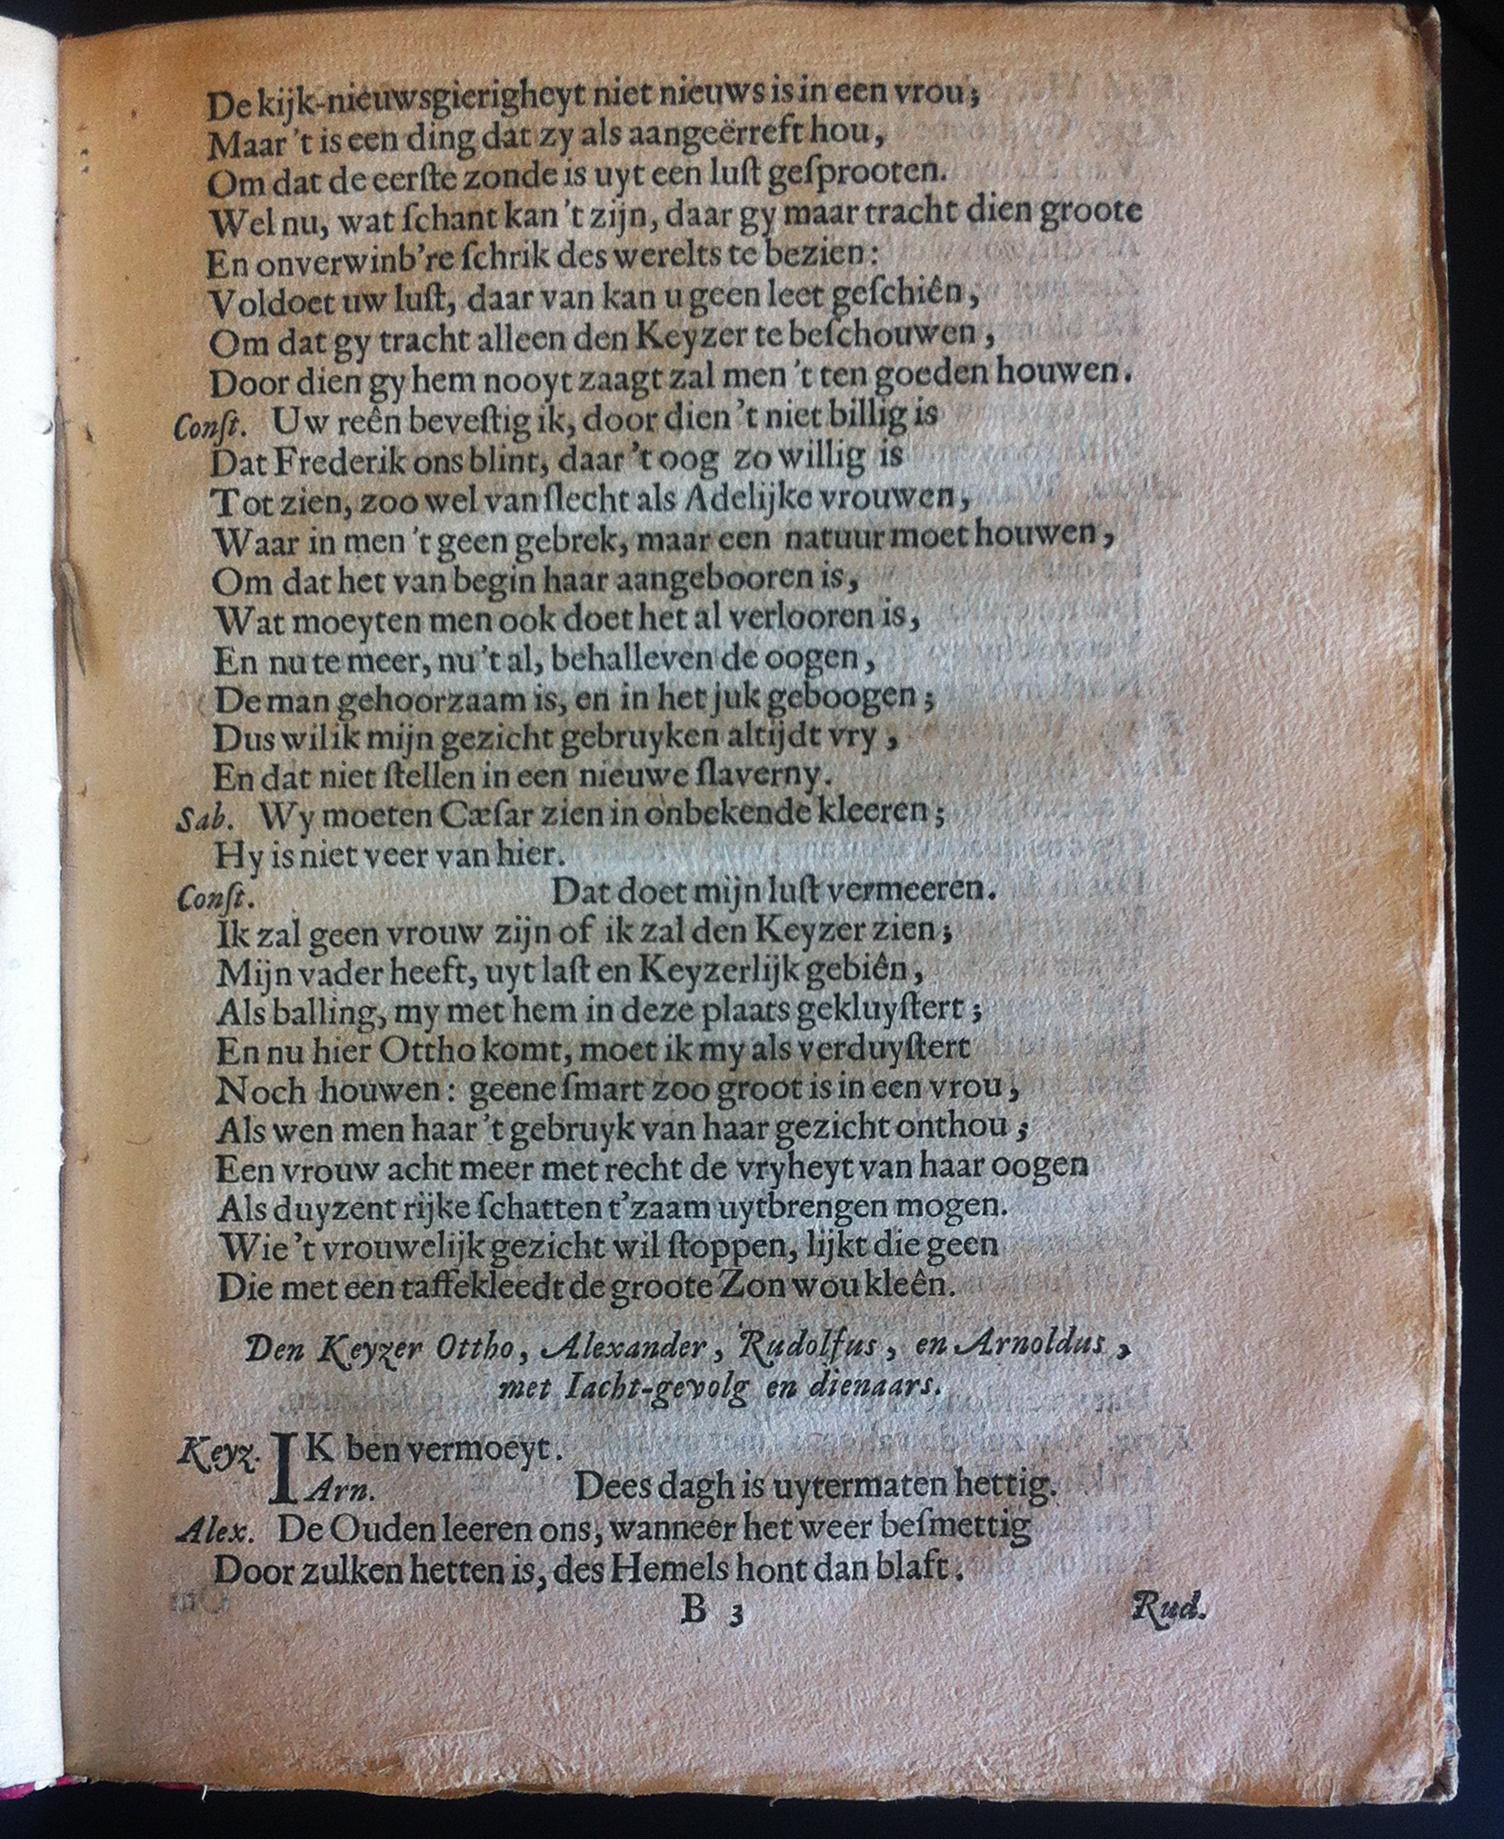 De kijk-nieuwsgierigheyt niet nieuws is in een vrou;
Maar 't is een ding dat zy als aangeërreft hou,
Om dat de eerſte zonde is uyt een luſt geſprooten.
Wel nu, wat ſchant kan 't zijn, daar gy maar tracht dien groote
En onverwinb're ſchrik des werelts te bezien:
Voldoet uw luſt, daar van kan u geen leet geſchiên,
Om dat gy tracht alleen den Keyzer te beſchouwen,
Door dien gy hem nooyt zaagt zal men 't ten goeden houwen.
Conſt. Uw reên beveſtig ik, door dien 't niet billig is
Dat Frederik ons blint, daar 't oog zo willig is
Tot zien, zoo wel van ſlecht als Adelijke vrouwen,
Waar in men 't geen gebrek, maar een natuur moet houwen,
Om dat het van begin haar aangebooren is,
Wat moeyten men ook doet het al verlooren is,
En nu te meer, nu 't al, behalleven de oogen,
De man gehoorzaam is, en in het juk geboogen;
Dus wil ik mijn gezicht gebruyken altijdt vry,
En dat niet ſtellen in een nieuwe ſlaverny.
Sab. Wy moeten Cæſar zien in onbekende kleeren;
Hy is niet veer van hier.
Conſt. Dat doet mijn luſt vermeeren.
Ik zal geen vrouw zijn of ik zal den Keyzer zien;
Mijn vader heeft, uyt laſt en Keyzerlijk gebiên,
Als balling, my met hem in deze plaats gekluyſtert;
En nu hier Ottho komt, moet ik my als verduyſtert
Noch houwen: geene ſmart zoo groot is in een vrou,
Als wen men haar 't gebruyk van haar gezicht onthou;
Een vrouw acht meer met recht de vryheyt van haar oogen
Als duyzent rijke ſchatten t'zaam uytbrengen mogen.
Wie 't vrouwelijk gezicht wil ſtoppen, lijkt die geen
Die met een taffekleedt de groote Zon wou kleên.
Den Keyzer Ottho, Alexander, Rudolfus, en Arnoldus,
met Iacht-gevolg en dienaars.
Keyz. IK ben vermoeyt.
Arn. Dees dagh is uytermaten hettig.
Alex. De Ouden leeren ons, wanneer het weer beſmettig
Door zulken hetten is, des Hemels hont dan blaft.
B 3 Rud.